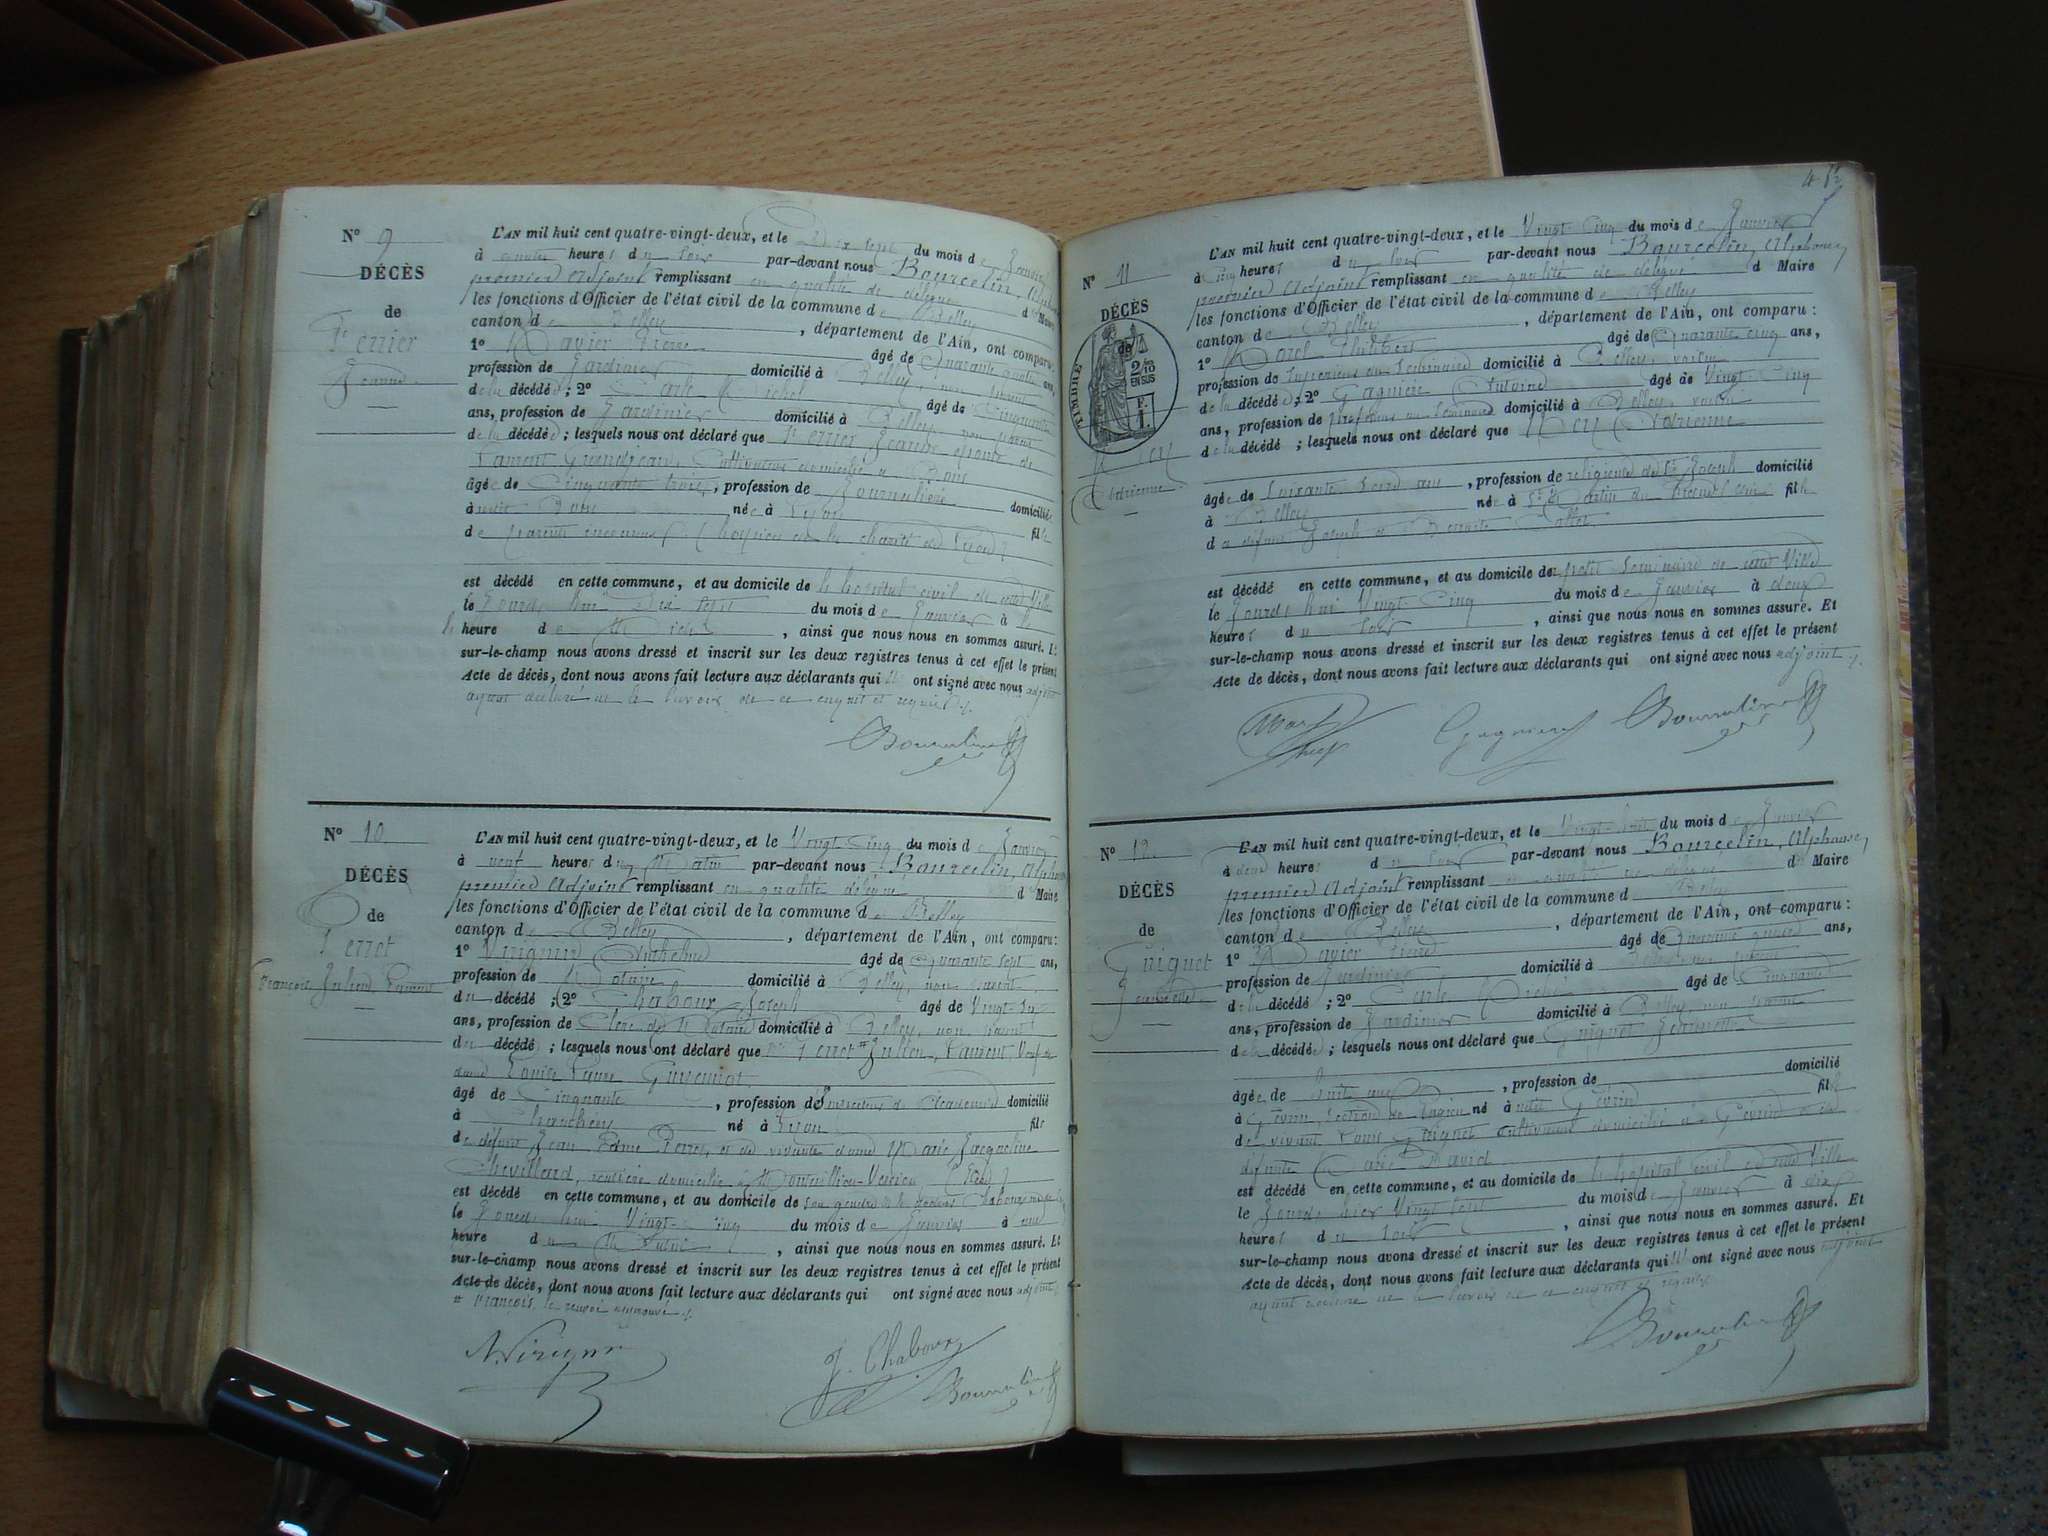 N° 9
DÉCÈS
de
Ferrier
Jeanne
L'AN mil huit cent quatre-vingt-deux, et le Dix sept du mois de Janvier
à heures du soir par-devant nous Bourcelin,
premier Adjoint remplissant en qualité de délégué d Maire
les fonctions d'Officier de l'état civil de la commune de Belley
canton de Belley, département de l'Ain, ont comparu:
1° Pierre âgé de Quarante quatre ans,
profession de Jardinier domicilié à Belley, non parent
de la décédée; 2° Michel âgé de Cinquante
ans, profession de Jardinier domicilié à Belley non parent
de la décédée; lesquels nous ont déclaré que Ferrier Jeanne épouse de
Laurent Cultivateur domicilié à
âgée de Cinquante trois, profession de Journalière domiciliée
à née à Lyon fille
de parents inconnus (hospice de la charité de Lyon)
est décédé en cette commune, et au domicile de l'hôpital civil de cette Ville
le Jourd'hui Dix sept du mois de Janvier à
heure d, ainsi que nous nous en sommes assuré. Et
sur-le-champ nous avons dressé et inscrit sur les deux registres tenus à cet effet le présent
Acte de décès, dont nous avons fait lecture aux déclarants qui ont signé avec nous adjoint
ayant déclaré ne le savoir de ce enquis et requis
Bourcelin
N° 10
DÉCÈS
de
Perret
François Julien Laurent
L'AN mil huit cent quatre-vingt-deux, et le Vingt Cinq du mois de Janvier
à neuf heures du Matin par-devant nous Bourcelin, Alphonse
premier Adjoint remplissant en qualité délégué d Maire
les fonctions d'Officier de l'état civil de la commune de Belley
canton de Belley, département de l'Ain, ont comparu:
1° Anthelme âgé de Quarante sept ans,
profession de Notaire domicilié à Belley, non parent
du décédé; 2° Chaboux Joseph âgé de Vingt
ans, profession de Clerc de Notaire domicilié à Belley, non parent
du décédé; lesquels nous ont déclaré que Perret Julien, Laurent Veuf de
dame Louise
âgé de Cinquante, profession de Inspecteur d'Académie domicilié
à né à Lyon fils
de défunt Jean Perret, et de vivante dame Marie Jacqueline
Chevillard, rentière domiciliée à
est décédé en cette commune, et au domicile de son gendre
le Jourd'hui Vingt Cinq du mois de Janvier à une
heure du Matin, ainsi que nous nous en sommes assuré. Et
sur-le-champ nous avons dressé et inscrit sur les deux registres tenus à cet effet le présent
Acte de décès, dont nous avons fait lecture aux déclarants qui ont signé avec nous adjoint
François, le renvoi approuvé
J. Chaboux
Bourcelin
48
N° 11
DÉCÈS
de
TIMBRE
2/10
EN SUS
F.
1.
Adrienne
L'AN mil huit cent quatre-vingt-deux, et le Vingt Cinq du mois de Janvier
à cinq heures du soir par-devant nous Bourcelin, Alphonse,
premier Adjoint remplissant en qualité de délégué d Maire
les fonctions d'Officier de l'état civil de la commune de Belley
canton de Belley, département de l'Ain, ont comparu:
1° Philibert âgé de Quarante cinq ans,
profession de Supérieur du Séminaire domicilié à Belley, voisin
de la décédée; 2° Gagnière Antoine âgé de Vingt-Cinq
ans, profession de professeur au Séminaire domicilié à Belley, voisin
de la décédé; lesquels nous ont déclaré que Adrienne
âgée de Soixante ans, profession de religieuse de St Joseph domicilié
à Belley née à fille
de défunt Joseph et
est décédé en cette commune, et au domicile de petit Séminaire de cette Ville
le Jourd'hui Vingt-Cinq du mois de Janvier à deux
heures du soir, ainsi que nous nous en sommes assuré. Et
sur-le-champ nous avons dressé et inscrit sur les deux registres tenus à cet effet le présent
Acte de décès, dont nous avons fait lecture aux déclarants qui ont signé avec nous adjoint
Gagnière Bourcelin
N° 12
DÉCÈS
de
Guiguet
Jeannette
L'AN mil huit cent quatre-vingt-deux, et le Vingt-huit du mois de Janvier
à deux heures du soir par-devant nous Bourcelin, Alphonse,
premier Adjoint remplissant en qualité de délégué d Maire
les fonctions d'Officier de l'état civil de la commune de Belley
canton de Belley, département de l'Ain, ont comparu:
1° Pierre âgé de Quarante quatre ans,
profession de Jardinier domicilié à Belley non parent
de la décédée; 2° Michel âgé de Cinquante
ans, profession de Jardinier domicilié à Belley non parent
de la décédée; lesquels nous ont déclaré que Guiguet Jeannette
âgée de huit ans, profession de domicilié
à né à fille
de vivant Louis Guiguet cultivateur domicilié à et de
défunte Marie David
est décédé en cette commune, et au domicile de l'hôpital civil de cette Ville
le Jourd'hier Vingt Sept du mois de Janvier à dix
heures du soir, ainsi que nous nous en sommes assuré. Et
sur-le-champ nous avons dressé et inscrit sur les deux registres tenus à cet effet le présent
Acte de décès, dont nous avons fait lecture aux déclarants qui ont signé avec nous adjoint
ayant déclaré ne le savoir de ce enquis et requis
Bourcelin